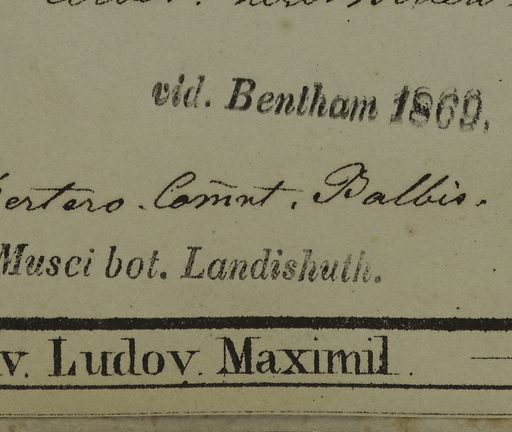 vid. Bentham 1869.
ertero. Com̄nt. Balbis.
Musci bot. Landishuth.
v. Ludov. Maximil.